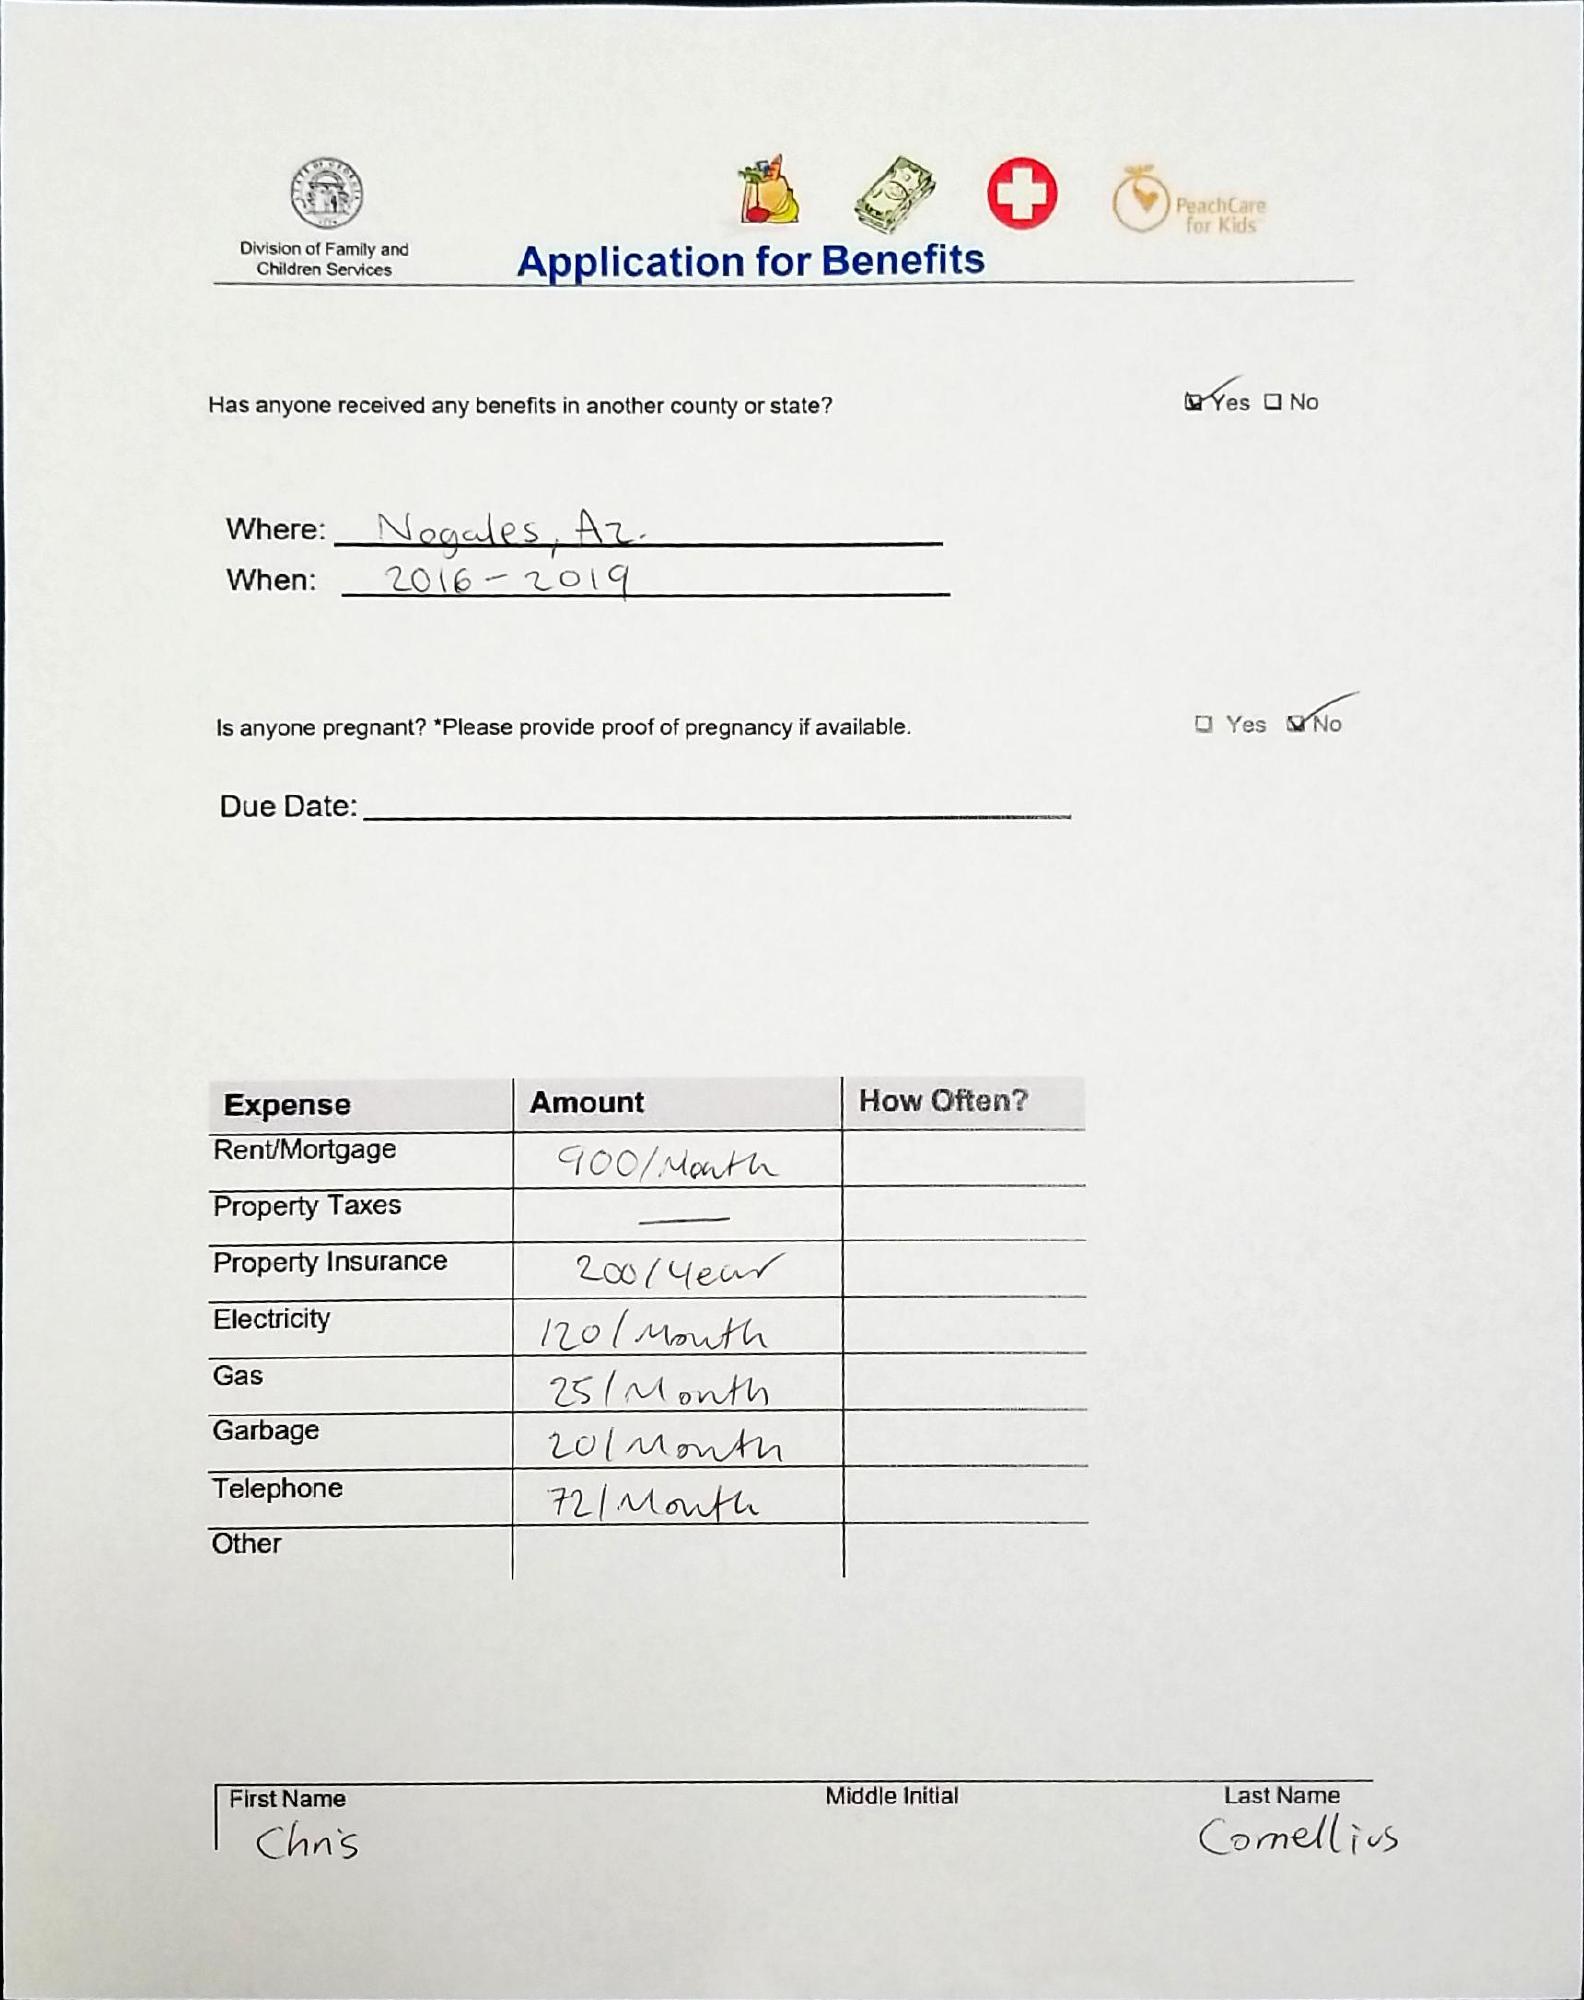 STATE OF GEORGIA
Division of Family and
Children Services
Application for Benefits
PeachCare
for Kids
Has anyone received any benefits in another county or state? ☑ Yes ☐ No
Where: Nogales, Az.
When: 2016 - 2019
Is anyone pregnant? *Please provide proof of pregnancy if available. ☐ Yes ☑ No
Due Date:
Expense Amount How Often?
Rent/Mortgage 900/Month
Property Taxes —
Property Insurance 200/Year
Electricity 120/Month
Gas 25/Month
Garbage 20/Month
Telephone 72/Month
Other
First Name Middle Initial Last Name
Chris Cornellius